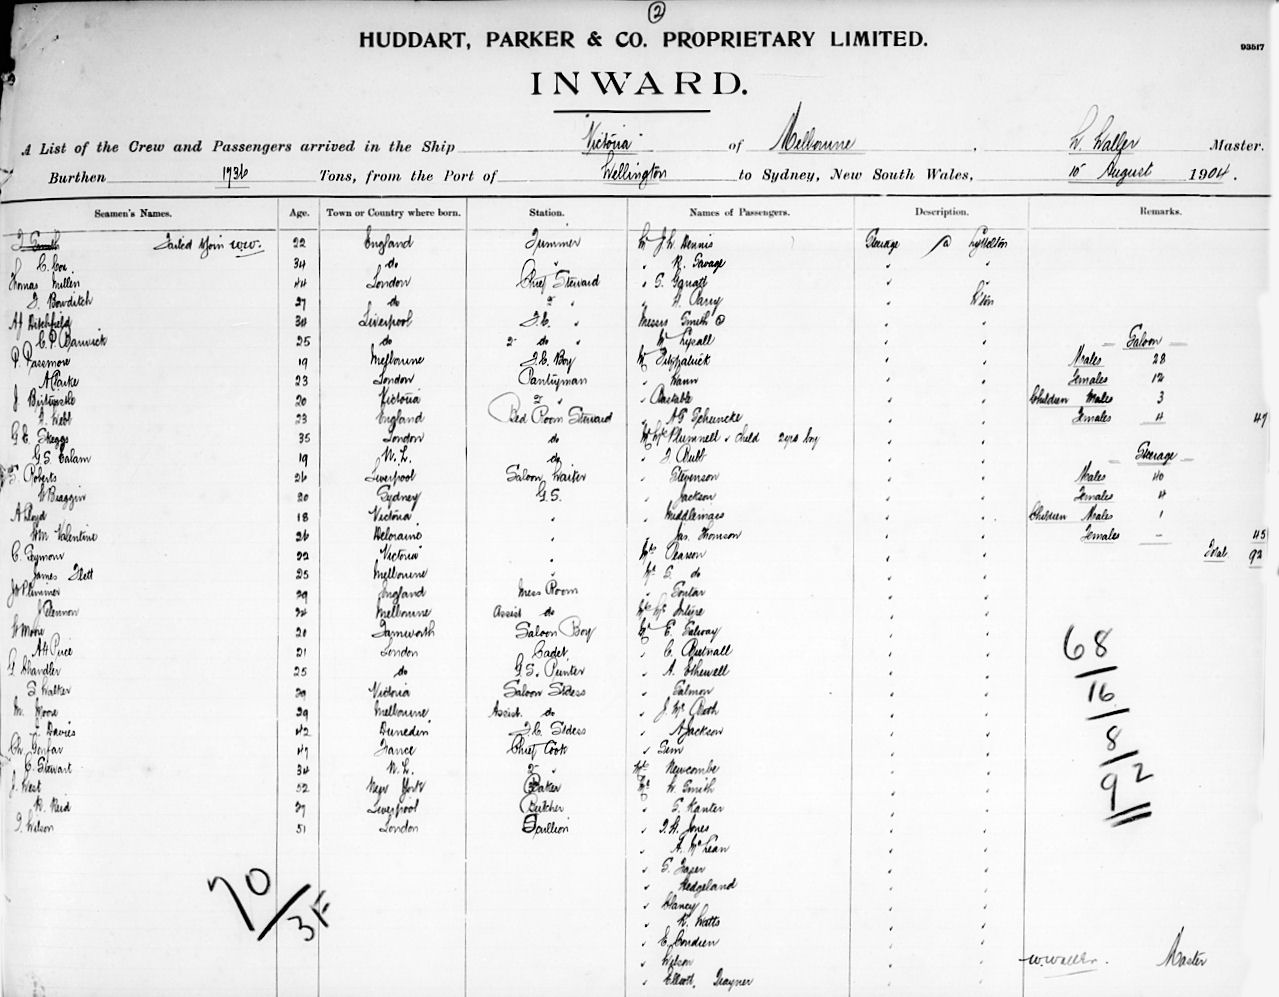 2
HUDDART, PARKER & CO. PROPRIETARY LIMITED.
93517
INWARD.
A List of the Crew and Passengers arrived in the Ship "Victoria" of Melbourne, W. Waller Master.
Burthen 1736 Tons, from the Port of Wellington to Sydney, New South Wales, 15 August 1904.
Seamen's Names. Age. Town or Country where born. Station. Names of Passengers. Description. Remarks.
Smith Failed to join W.W. 22 England Trimmer Mr J. W. Dennis Steerage Lyttelton
C. Cox. 34 do " " R. Savage " "
Thomas Millen 44 London Chief Steward " S. " "
J. Bowditch 27 do 2 " " Parry " W'ton
Af Ditchfield 34 Liverpool F.C. " Messrs Smith " "
C. P. Barwick 25 do 2 do " Mr Lysall " "
P. Passmore 19 Melbourne F.C. Boy Mr Fitzpatrick " "
A Parke 23 London Pantryman " Mann " "
J 20 Victoria 2 " " Constable " "
J. Webb 23 England Bed Room Steward " A G Scheuncke " "
G E. Skeggs 35 London do Plumnell & Child 2 yrs boy " "
G. S. Calam 19 N.Z. do " J Butt " "
S. Roberts 26 Liverpool Saloon Waiter " Stevenson " "
W Braggin 20 Sydney G.S. " Jackson " "
A Lloyd 18 Victoria " " Middlemass " "
Wm Valentine 26 Deloraine " " Jas. Thomson " "
C. Seymour 22 Victoria " Mrs Pearson " "
James Flett 25 Melbourne " S. do " "
W Plimmer 29 England Mess Room " Soutar " "
J Lennon 24 Melbourne Assist do Mc Intyre " "
W Moore 20 Tamworth Saloon Boy E. Galway " "
A H Price 21 London Cadet " C. " "
G. Chandler 25 do G.S. Printer " A. Othewell " "
S Walker 29 Victoria Saloon Stdess " Salmon " "
M. Moore 29 Melbourne Assist. do " J. Mc Beth " "
E Davies 42 Dunedin F.C. Stdess " A Jackson " "
Ch. 47 France Chief Cook " Sim " "
C. Stewart 34 N.Z. 2 " Newcombe " "
J. West 52 New York Baker W. Smith " "
R. Reid 37 Liverpool Butcher " S. Kanter " "
J. Wilson 51 London Scullion " J. H. Jones " "
" A. McLean " "
" S. Fraser " "
" Hedgeland " "
" Blaney " "
" R. Watts " "
" E. Condren " "
" Wilson " "
" Elliott, Trayner " "
Saloon
Males 28
Females 12
Children Males 3
Females 4 47
Steerage
Males 40
Females 4
Children Males 1
Females - 45
Total 92
68
16
8
92
70/3F
W. Waller. Master